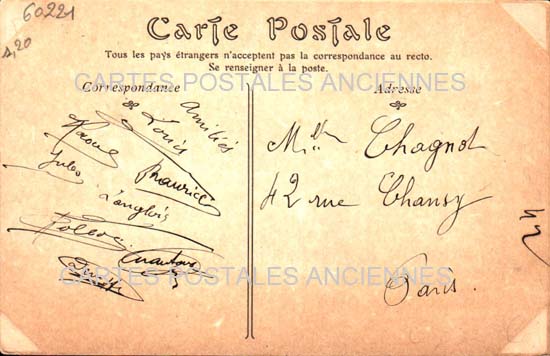 60221
1,20
Carte Postale
Tous les pays étrangers n'acceptent pas la correspondance au recto.
Se renseigner à la poste.
CARTES POSTALES ANCIENNES
Correspondance
Amitiés
Louis
Raoul
Jules
Maurice
Langlois
Adresse
Mlle Chagnot
42 rue Chanzy
Paris.
42
CARTES POSTALES ANCIENNES